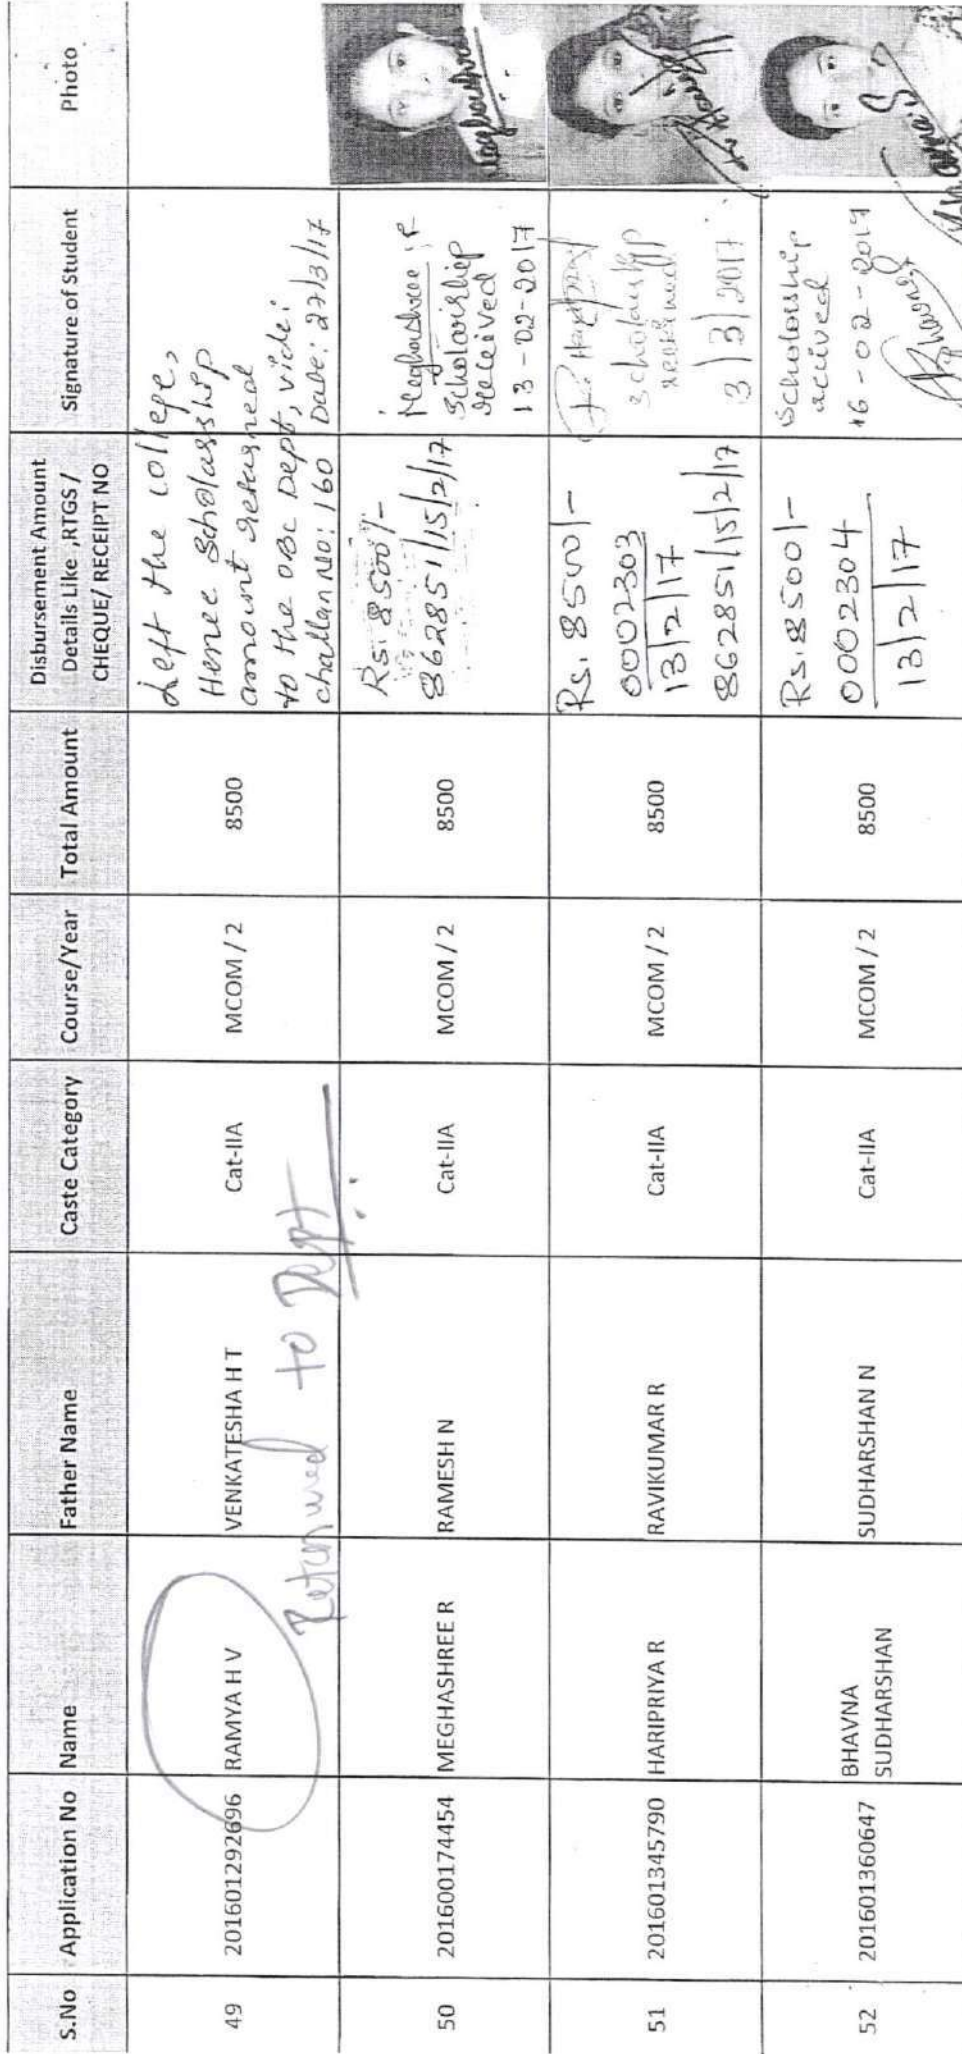 S.No Application No Name Father Name Caste Category Course/Year Total Amount Disbursement Amount Details Like ,RTGS / CHEQUE/ RECEIPT NO Signature of Student Photo
49 201601292696 RAMYA H V VENKATESHA H T Cat-IIA MCOM / 2 8500
Left the college,
Hence Scholarship
amount returned
to the OBC Dept, vide:
challan no: 160 Date: 27/3/17
Returned to Dept
50 201600174454 MEGHASHREE R RAMESH N Cat-IIA MCOM / 2 8500
Rs: 8500/-
862851/15/2/17
Meghashree .R
Scholarship
received
13-02-2017
51 201601345790 HARIPRIYA R RAVIKUMAR R Cat-IIA MCOM / 2 8500
Rs. 8500/-
0002303
13/2/17
862851/15/2/17
Scholarship
received
3/3/2017
52 201601360647 BHAVNA
SUDHARSHAN SUDHARSHAN N Cat-IIA MCOM / 2 8500
Rs. 8500/-
0002304
13/2/17
Scholarship